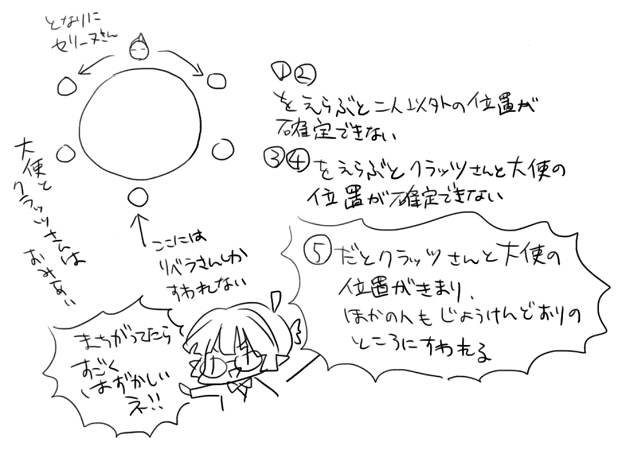 となりに
セリーヌさん
大使とクラッツさんは
おみあい
ここには
リベラさんしか
すわれない
①②
をえらぶと二人以外の位置が
確定できない
③④をえらぶとクラッツさんと大使の
位置が確定できない
⑤だとクラッツさんと大使の
位置がきまり、
ほかの人もじょうけんどおりの
ところにすわれる
まちがってたら
すごく
はずかしい
え!!